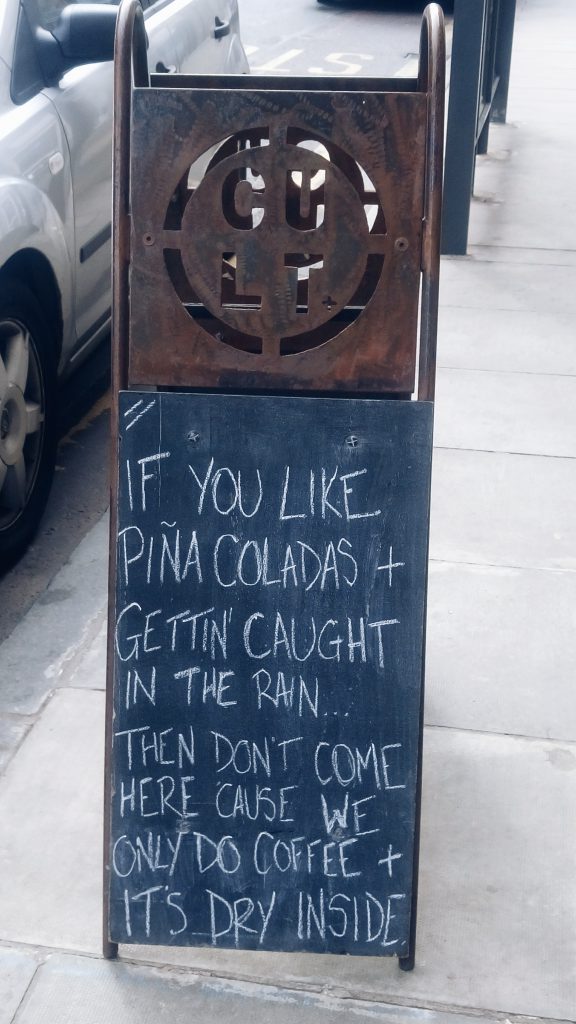 CU
LT+
IF YOU LIKE
PIÑA COLADAS +
GETTIN' CAUGHT
IN THE RAIN...
THEN DON'T COME
HERE 'CAUSE WE
ONLY DO COFFEE +
IT'S DRY INSIDE.